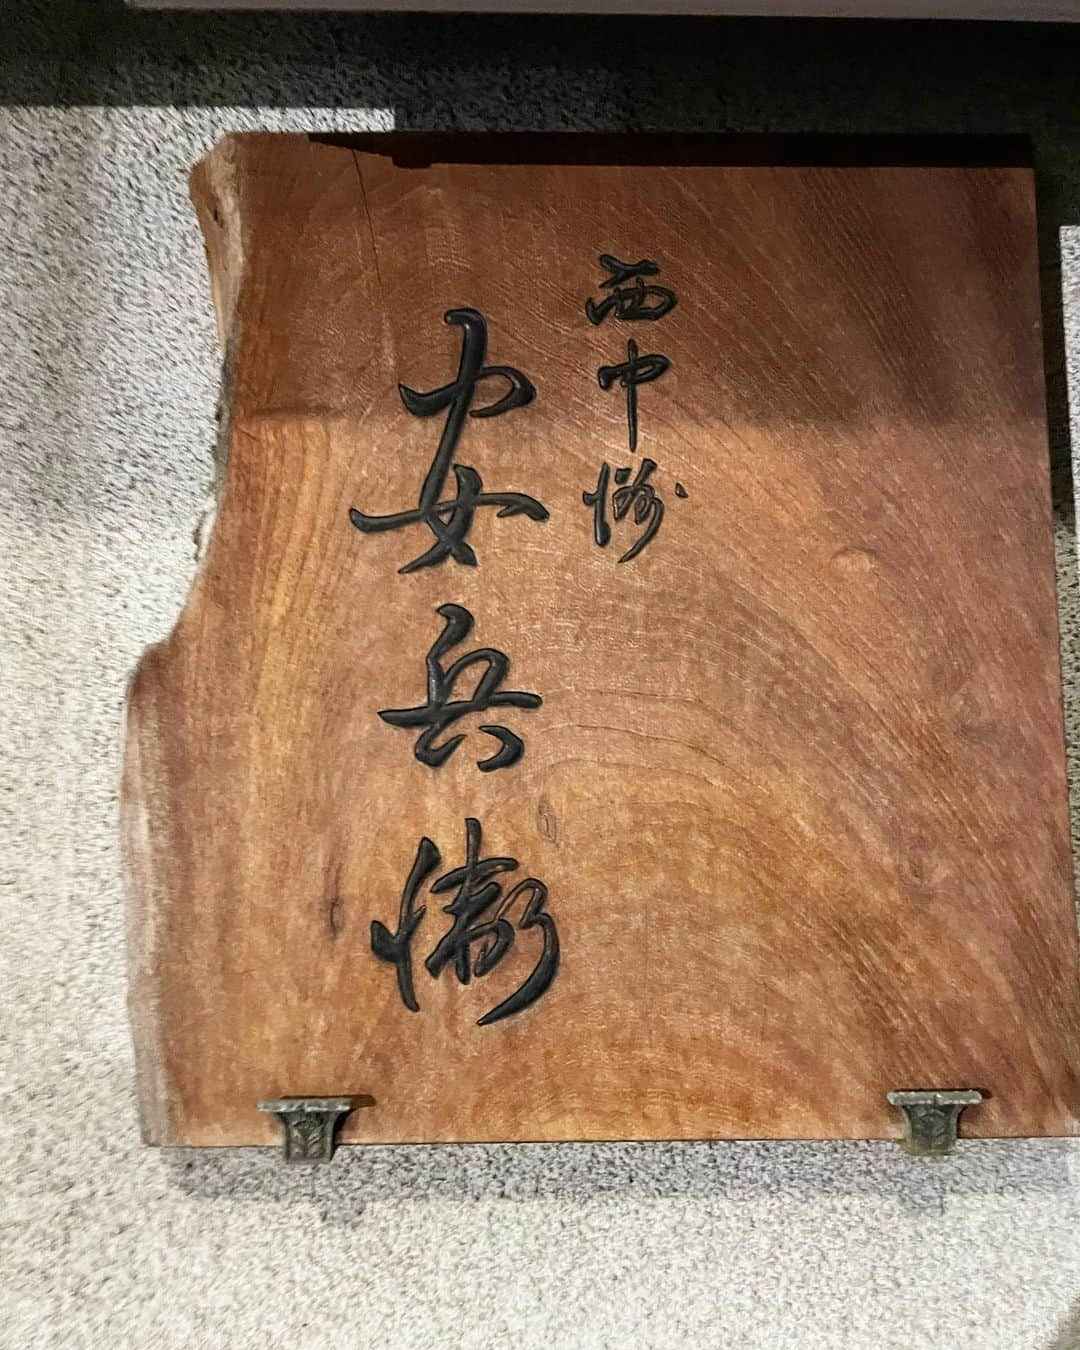 西中洲
安兵衛